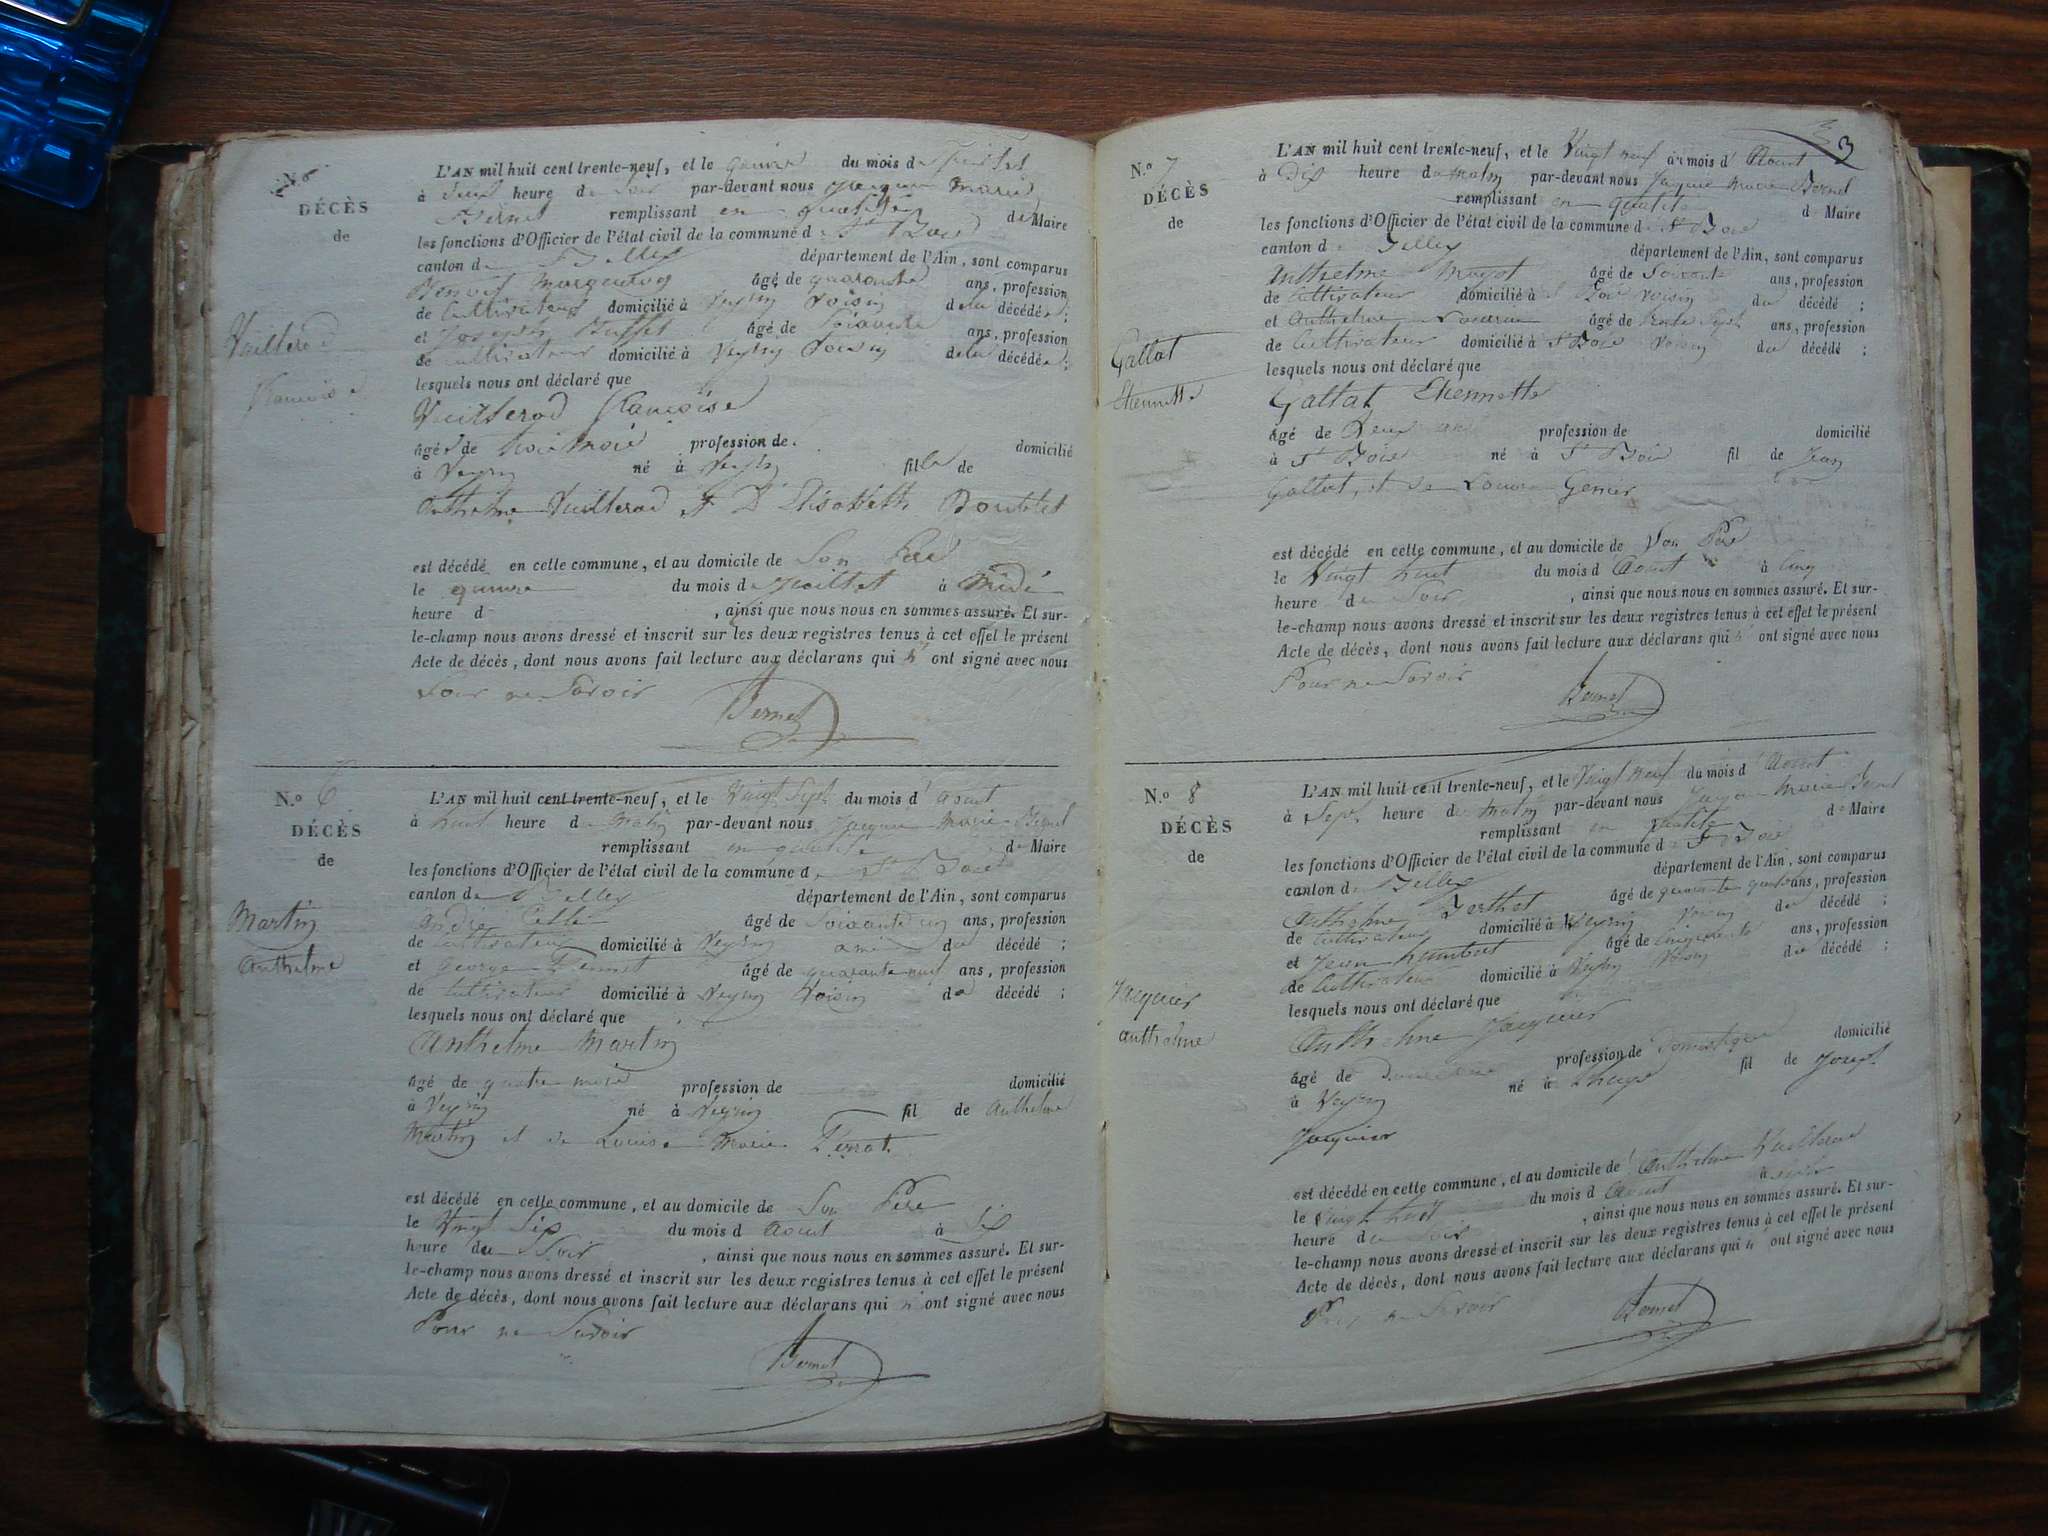 N.o
DÉCÈS
de
Vuillerod
Françoise
L'AN mil huit cent trente-neuf, et le quinze du mois de Juillet
à deux heure du Soir par-devant nous Jacques Marie
Bernet remplissant en qualité de Maire
les fonctions d'Officier de l'état civil de la commune de St Bois
canton de Belley département de l'Ain, sont comparus
Benoit âgé de quarante ans, profession
de Cultivateur domicilié à Veyrin Voisin de la décédée ;
et Joseph Buffet âgé de Soixante ans, profession
de Cultivateur domicilié à Veyrin Voisin de la décédée ;
lesquels nous ont déclaré que
Vuillerod Françoise
âgé de trois mois profession de domicilié
à Veyrin né à Veyrin fille de
Anthelme Vuillerod et D'Elisabeth
est décédé en cette commune, et au domicile de Son Père
le quinze du mois de Juillet à Midi
heure d , ainsi que nous nous en sommes assuré. Et sur-
le-champ nous avons dressé et inscrit sur les deux registres tenus à cet effet le présent
Acte de décès, dont nous avons fait lecture aux déclarans qui n' ont signé avec nous
Pour ne Savoir
Bernet
N.o 6
DÉCÈS
de
Martin
Anthelme
L'AN mil huit cent trente-neuf, et le Vingt Sept du mois d'Aout
à huit heure du Matin par-devant nous Jacques Marie Bernet
remplissant en qualité de Maire
les fonctions d'Officier de l'état civil de la commune de St Bois
canton de Belley département de l'Ain, sont comparus
André âgé de Soixante cinq ans, profession
de Cultivateur domicilié à Veyrin ami du décédé ;
et George Pernet âgé de quarante neuf ans, profession
de Cultivateur domicilié à Veyrin Voisin du décédé ;
lesquels nous ont déclaré que
Anthelme Martin
âgé de quatre mois profession de domicilié
à Veyrin né à Veyrin fil de Anthelme
Martin et de Louise Marie
est décédé en cette commune, et au domicile de Son Père
le Vingt Six du mois d Aout à Six
heure du Soir , ainsi que nous nous en sommes assuré. Et sur-
le-champ nous avons dressé et inscrit sur les deux registres tenus à cet effet le présent
Acte de décès, dont nous avons fait lecture aux déclarans qui n' ont signé avec nous
Pour ne Savoir
Bernet
3
N.o 7
DÉCÈS
de
Gallat
Etiennette
L'AN mil huit cent trente-neuf, et le Vingt neuf du mois d'Aout
à Dix heure du Matin par-devant nous Jacques Marie Bernet
remplissant en qualité d Maire
les fonctions d'Officier de l'état civil de la commune de St Bois
canton de Belley département de l'Ain, sont comparus
Anthelme Mugot âgé de Soixante ans, profession
de Cultivateur domicilié à St Bois Voisin du décédé ;
et Anthelme âgé de trente Sept ans, profession
de Cultivateur domicilié à St Bois Voisin du décédé ;
lesquels nous ont déclaré que
Gallat Etiennette
âgé de Deux ans profession de domicilié
à St Bois né à St Bois fil de Jean
Gallat, et de Louise Genier
est décédé en cette commune, et au domicile de Son Père
le Vingt huit du mois d Aout à Cinq
heure du Soir , ainsi que nous nous en sommes assuré. Et sur-
le-champ nous avons dressé et inscrit sur les deux registres tenus à cet effet le présent
Acte de décès, dont nous avons fait lecture aux déclarans qui n' ont signé avec nous
Pour ne Savoir
Bernet
N.o 8
DÉCÈS
de
Jacquier
Anthelme
L'AN mil huit cent trente-neuf, et le Vingt neuf du mois d'Aout
à Sept heure du Matin par-devant nous Jacques Marie Bernet
remplissant en qualité de Maire
les fonctions d'Officier de l'état civil de la commune de St Bois
canton de Belley département de l'Ain, sont comparus
Anthelme Berthet âgé de quarante quatre ans, profession
de Cultivateur domicilié à Veyrin Voisin du décédé ;
et Jean humbert âgé de Cinquante ans, profession
de Cultivateur domicilié à Veyrin Voisin du décédé ;
lesquels nous ont déclaré que
Anthelme Jacquier
âgé de profession de Domestique domicilié
à Veyrin né à fil de Joseph
Jacquier
est décédé en cette commune, et au domicile de Anthelme Vuillerod
le Vingt huit du mois d Aout à
heure du Soir , ainsi que nous nous en sommes assuré. Et sur-
le-champ nous avons dressé et inscrit sur les deux registres tenus à cet effet le présent
Acte de décès, dont nous avons fait lecture aux déclarans qui n' ont signé avec nous
Pour ne Savoir
Bernet